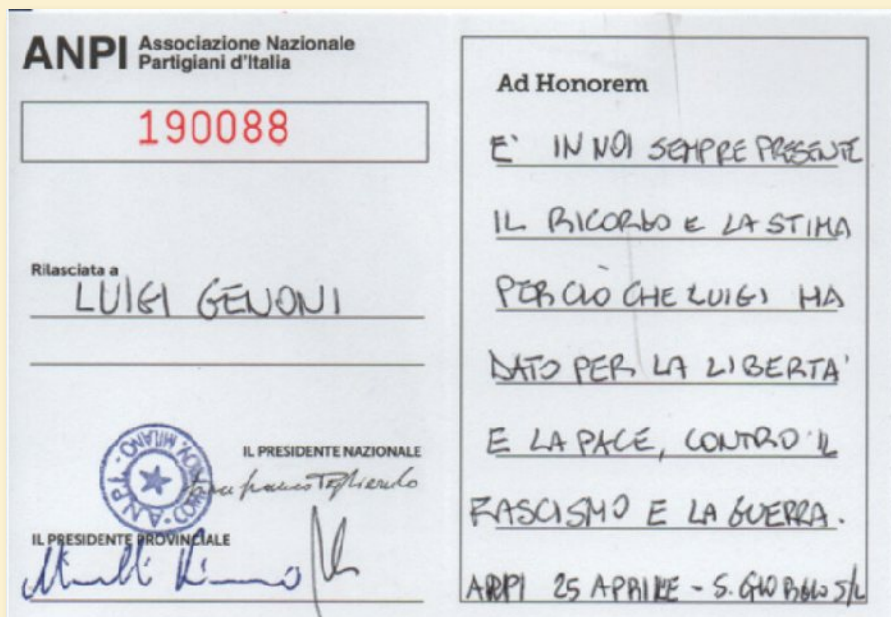 ANPI Associazione Nazionale
Partigiani d'Italia
190088
Rilasciata a
LUIGI GENONI
IL PRESIDENTE NAZIONALE
IL PRESIDENTE PROVINCIALE
Ad Honorem
E' IN NOI SEMPRE PRESENTE
IL RICORDO E LA STIMA
PER CIÒ CHE LUIGI HA
DATO PER LA LIBERTA'
E LA PACE, CONTRO IL
FASCISMO E LA GUERRA.
ANPI 25 APRILE - S. GIORGIO S/L